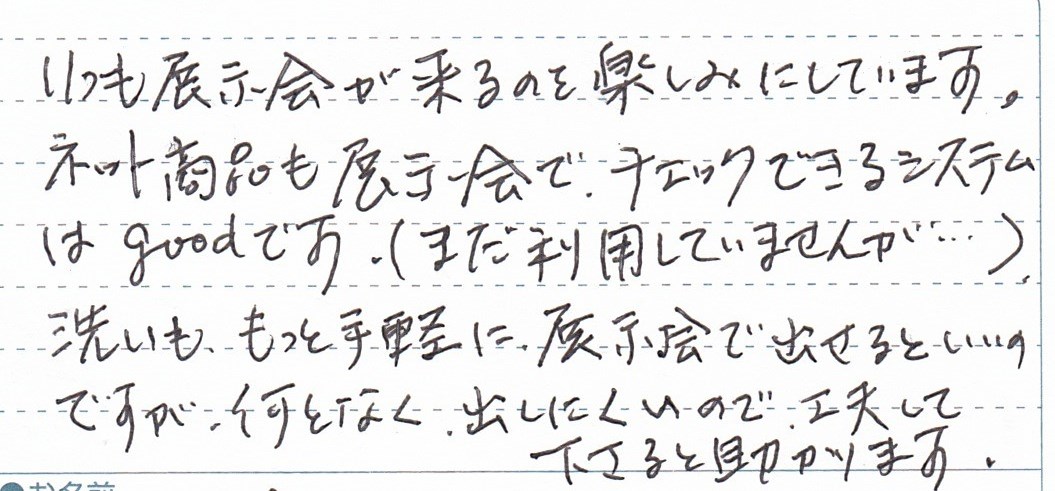 いつも展示会が来るのを楽しみにしています。
ネット商品も展示会で、チェックできるシステム
は goodです。(まだ利用していませんが…)、
洗いも、もっと手軽に、展示会で出せるといいの
ですが、何となく、出しにくいので、工夫して
下さると助かります。
●お名前